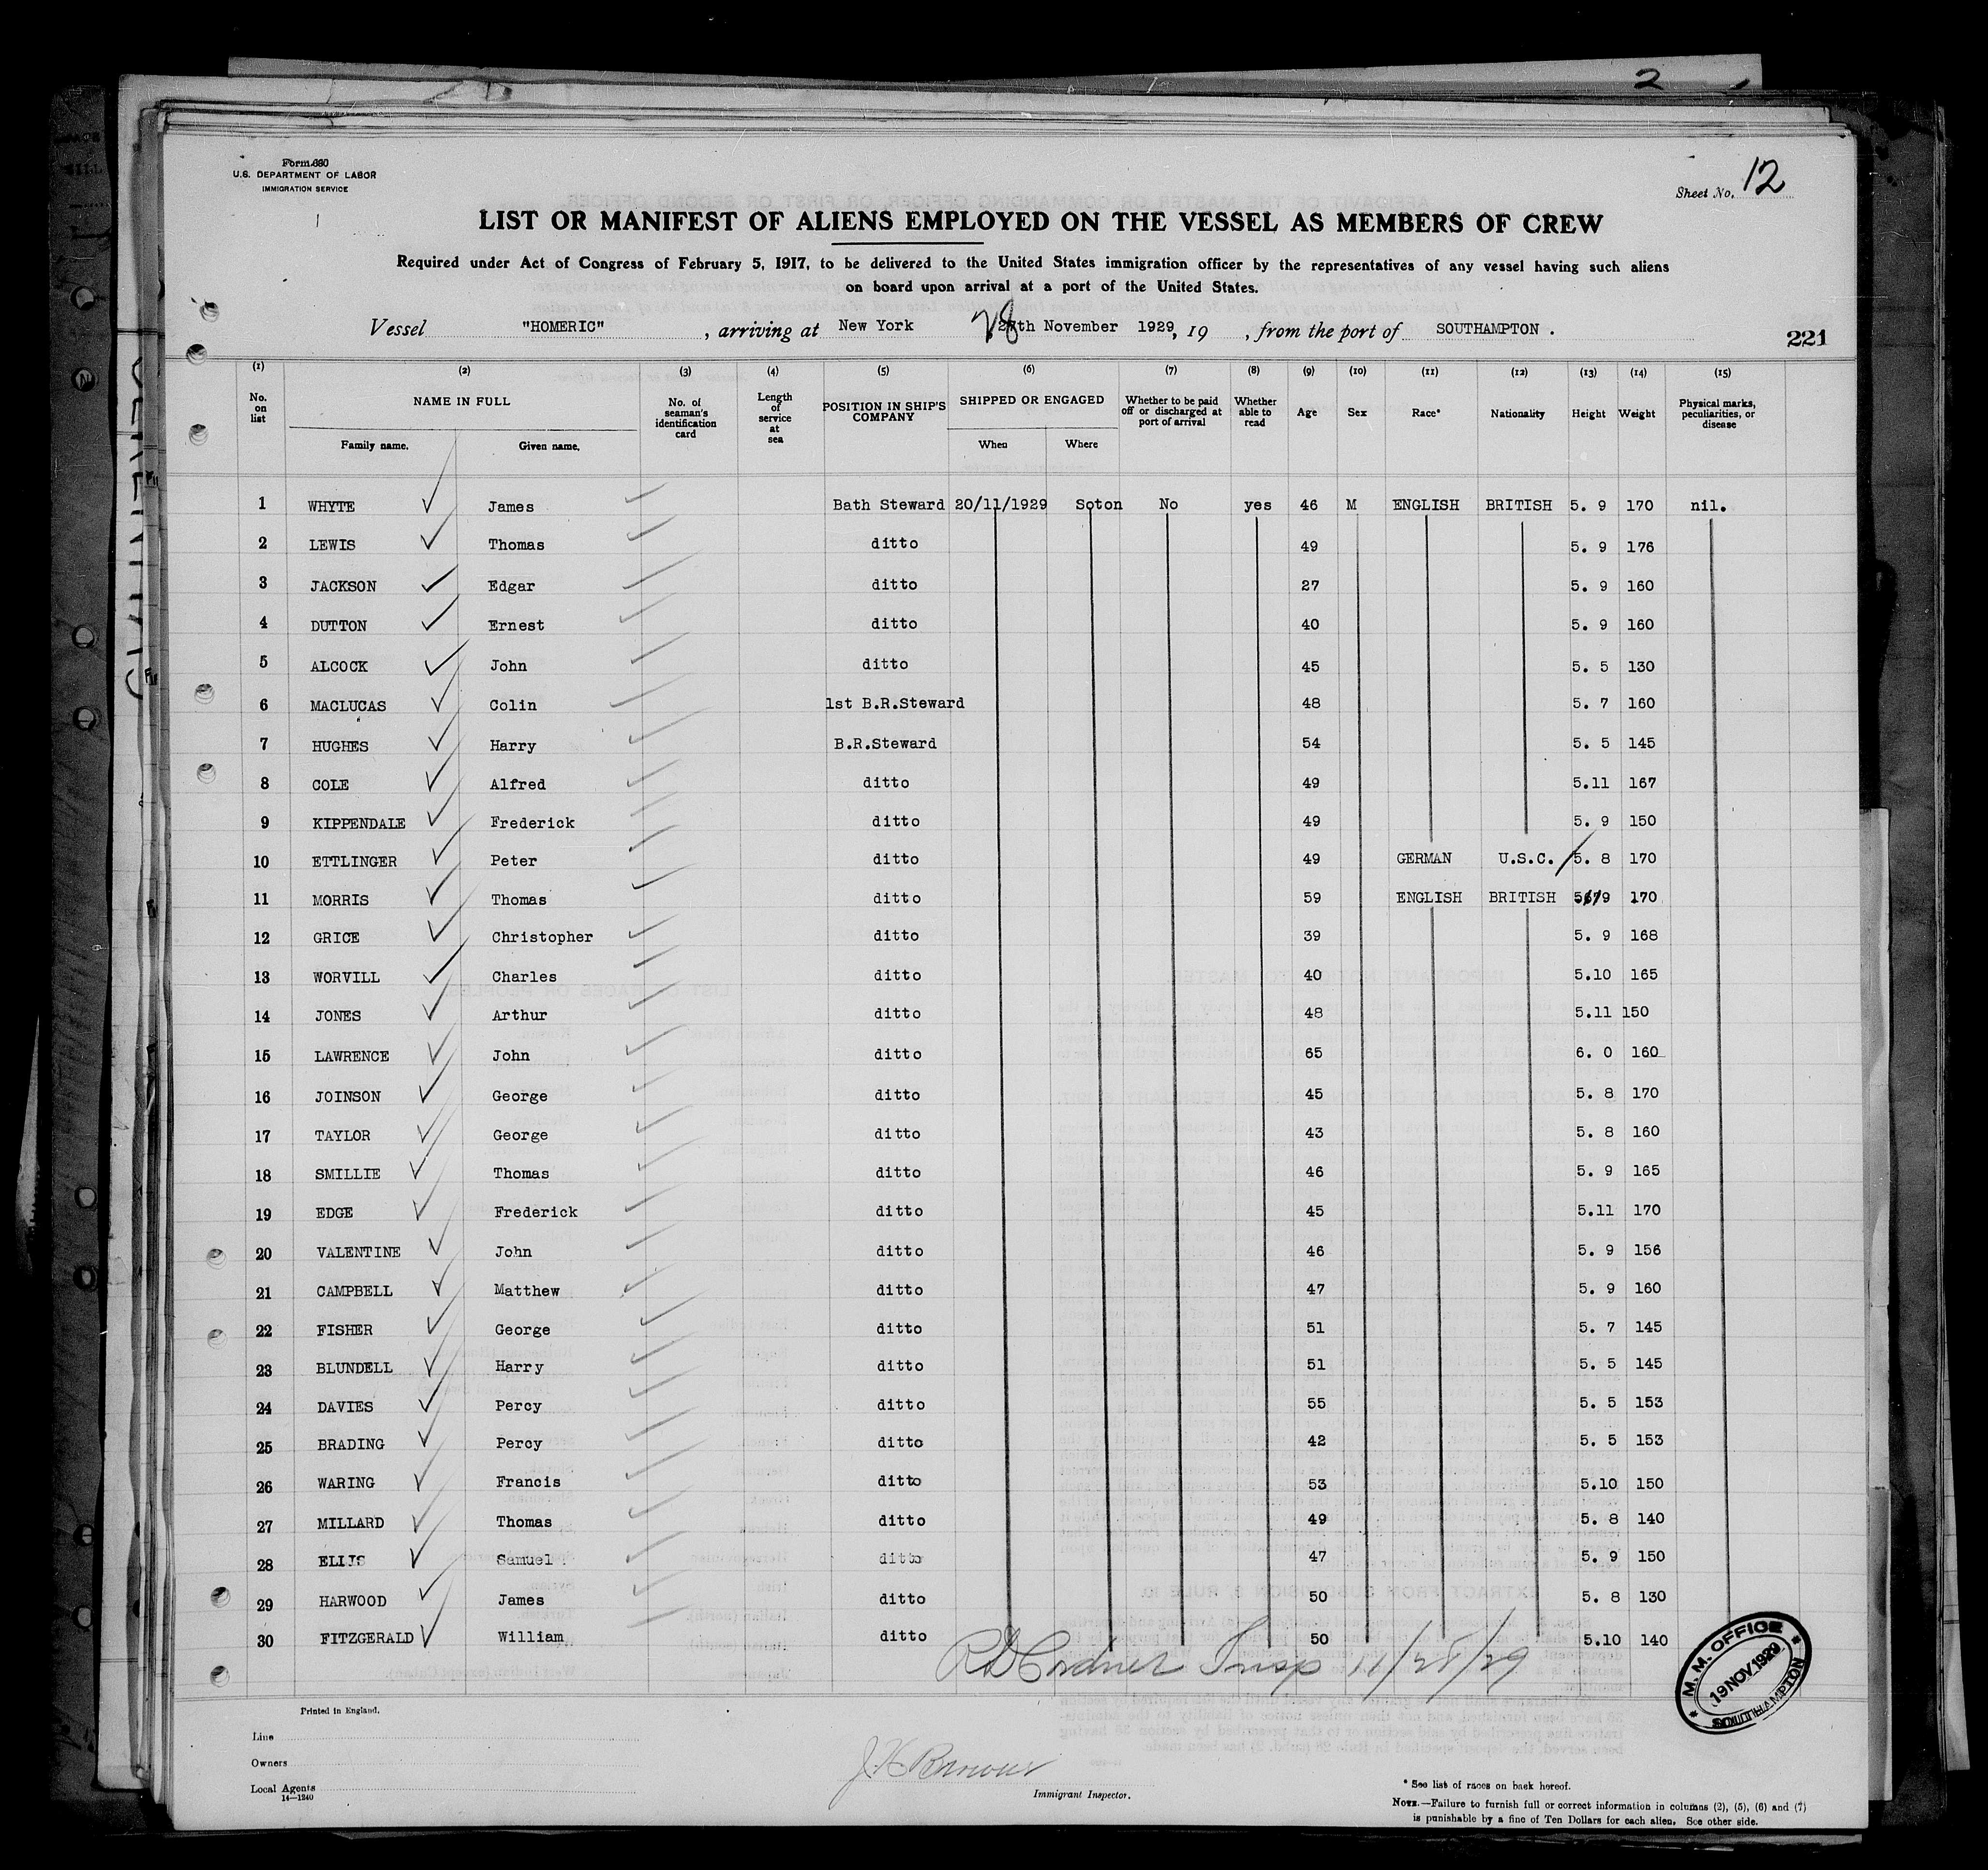 2
Form 680
U.S. DEPARTMENT OF LABOR
IMMIGRATION SERVICE
Sheet No. 12
LIST OR MANIFEST OF ALIENS EMPLOYED ON THE VESSEL AS MEMBERS OF CREW
Required under Act of Congress of February 5, 1917, to be delivered to the United States immigration officer by the representatives of any vessel having such aliens
on board upon arrival at a port of the United States.
Vessel "HOMERIC" , arriving at New York 28 27th November 1929, 19 , from the port of SOUTHAMPTON .
221
(1) (2) (3) (4) (5) (6) (7) (8) (9) (10) (11) (12) (13) (14) (15)
No. on list NAME IN FULL No. of seaman's identification card Length of service at sea POSITION IN SHIP'S COMPANY SHIPPED OR ENGAGED Whether to be paid off or discharged at port of arrival Whether able to read Age Sex Race* Nationality Height Weight Physical marks, peculiarities, or disease
Family name. Given name. When Where
1 WHYTE James Bath Steward 20/11/1929 Soton No yes 46 M ENGLISH BRITISH 5. 9 170 nil.
2 LEWIS Thomas ditto 49 5. 9 176
3 JACKSON Edgar ditto 27 5. 9 160
4 DUTTON Ernest ditto 40 5. 9 160
5 ALCOCK John ditto 45 5. 5 130
6 MACLUCAS Colin 1st B.R.Steward 48 5. 7 160
7 HUGHES Harry B.R.Steward 54 5. 5 145
8 COLE Alfred ditto 49 5.11 167
9 KIPPENDALE Frederick ditto 49 5. 9 150
10 ETTLINGER Peter ditto 49 GERMAN U.S.C. 5. 8 170
11 MORRIS Thomas ditto 59 ENGLISH BRITISH 170
12 GRICE Christopher ditto 39 5. 9 168
13 WORVILL Charles ditto 40 5.10 165
14 JONES Arthur ditto 48 5.11 150
15 LAWRENCE John ditto 65 6. 0 160
16 JOINSON George ditto 45 5. 8 170
17 TAYLOR George ditto 43 5. 8 160
18 SMILLIE Thomas ditto 46 5. 9 165
19 EDGE Frederick ditto 45 5.11 170
20 VALENTINE John ditto 46 5. 9 156
21 CAMPBELL Matthew ditto 47 5. 9 160
22 FISHER George ditto 51 5. 7 145
23 BLUNDELL Harry ditto 51 5. 5 145
24 DAVIES Percy ditto 55 5. 5 153
25 BRADING Percy ditto 42 5. 5 153
26 WARING Francis ditto 53 5.10 150
27 MILLARD Thomas ditto 49 5. 8 140
28 ELLIS Samuel ditto 47 5. 9 150
29 HARWOOD James ditto 50 5. 8 130
30 FITZGERALD William ditto 50 5.10 140
Insp 11/28/29
M. M. OFFICE
19 NOV 1929
SOUTHAMPTON
Printed in England.
Line
Owners
Local Agents
14—1240
Immigrant Inspector.
* See list of races on back hereof.
NOTE.—Failure to furnish full or correct information in columns (2), (5), (6) and (7)
is punishable by a fine of Ten Dollars for each alien. See other side.